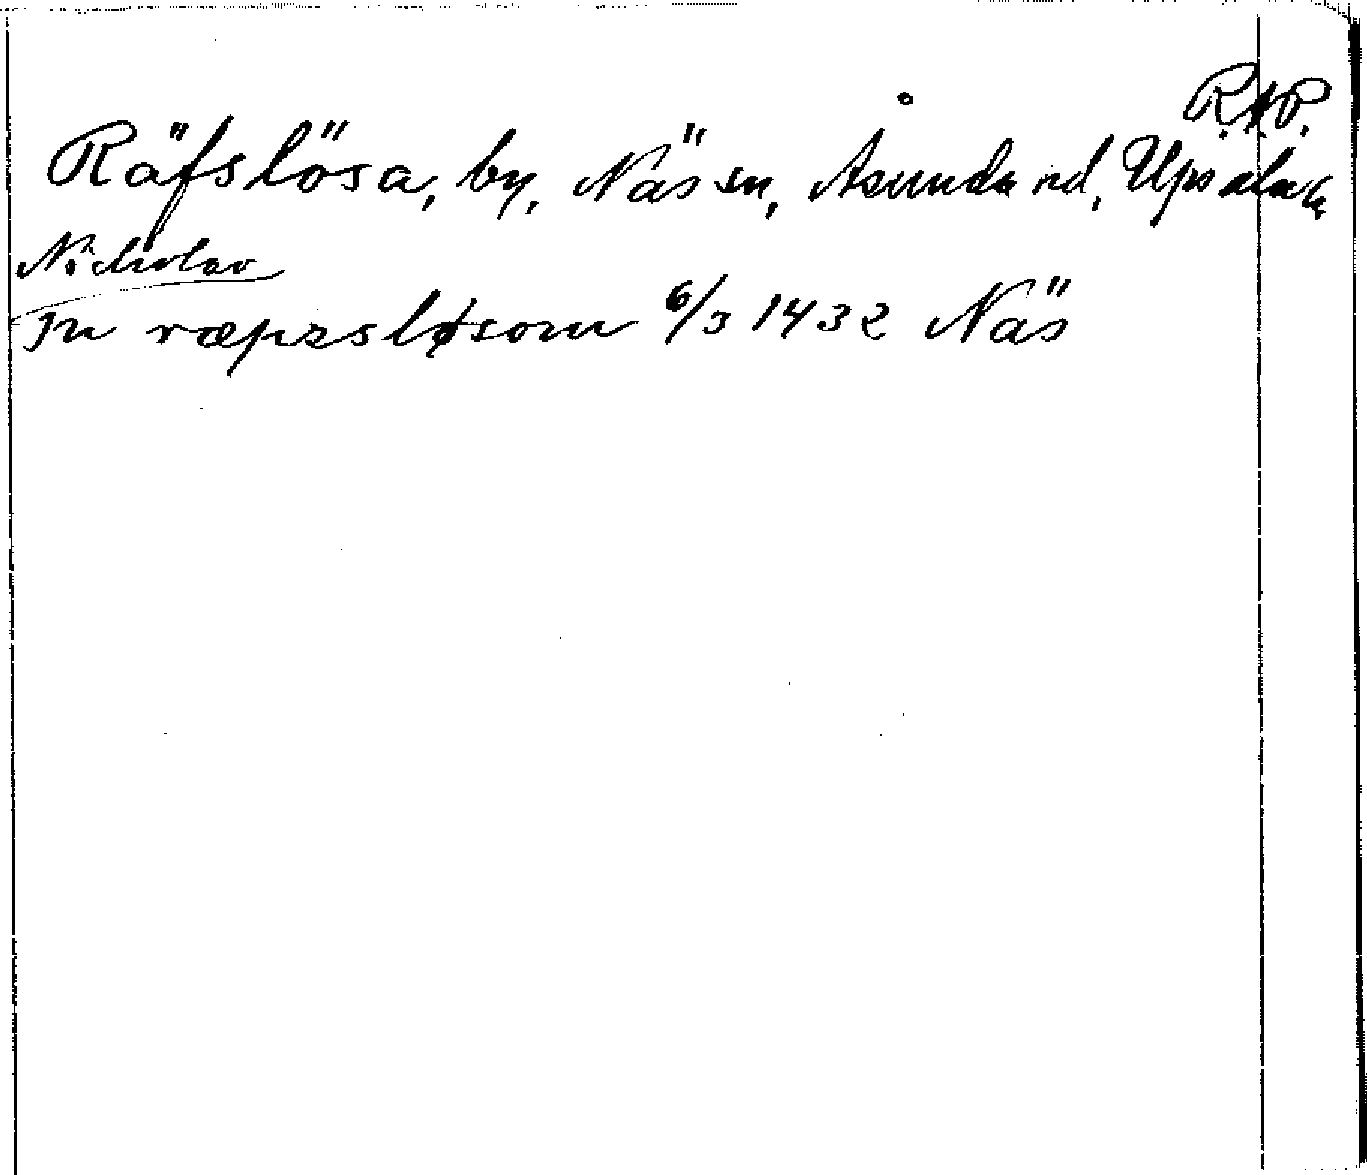 R.A.P.
Räfslösa, by, Näs sn, Åsunda hd, Upsala l.
Nicholao
Jn ræpzsløsom 6/3 1432 Näs